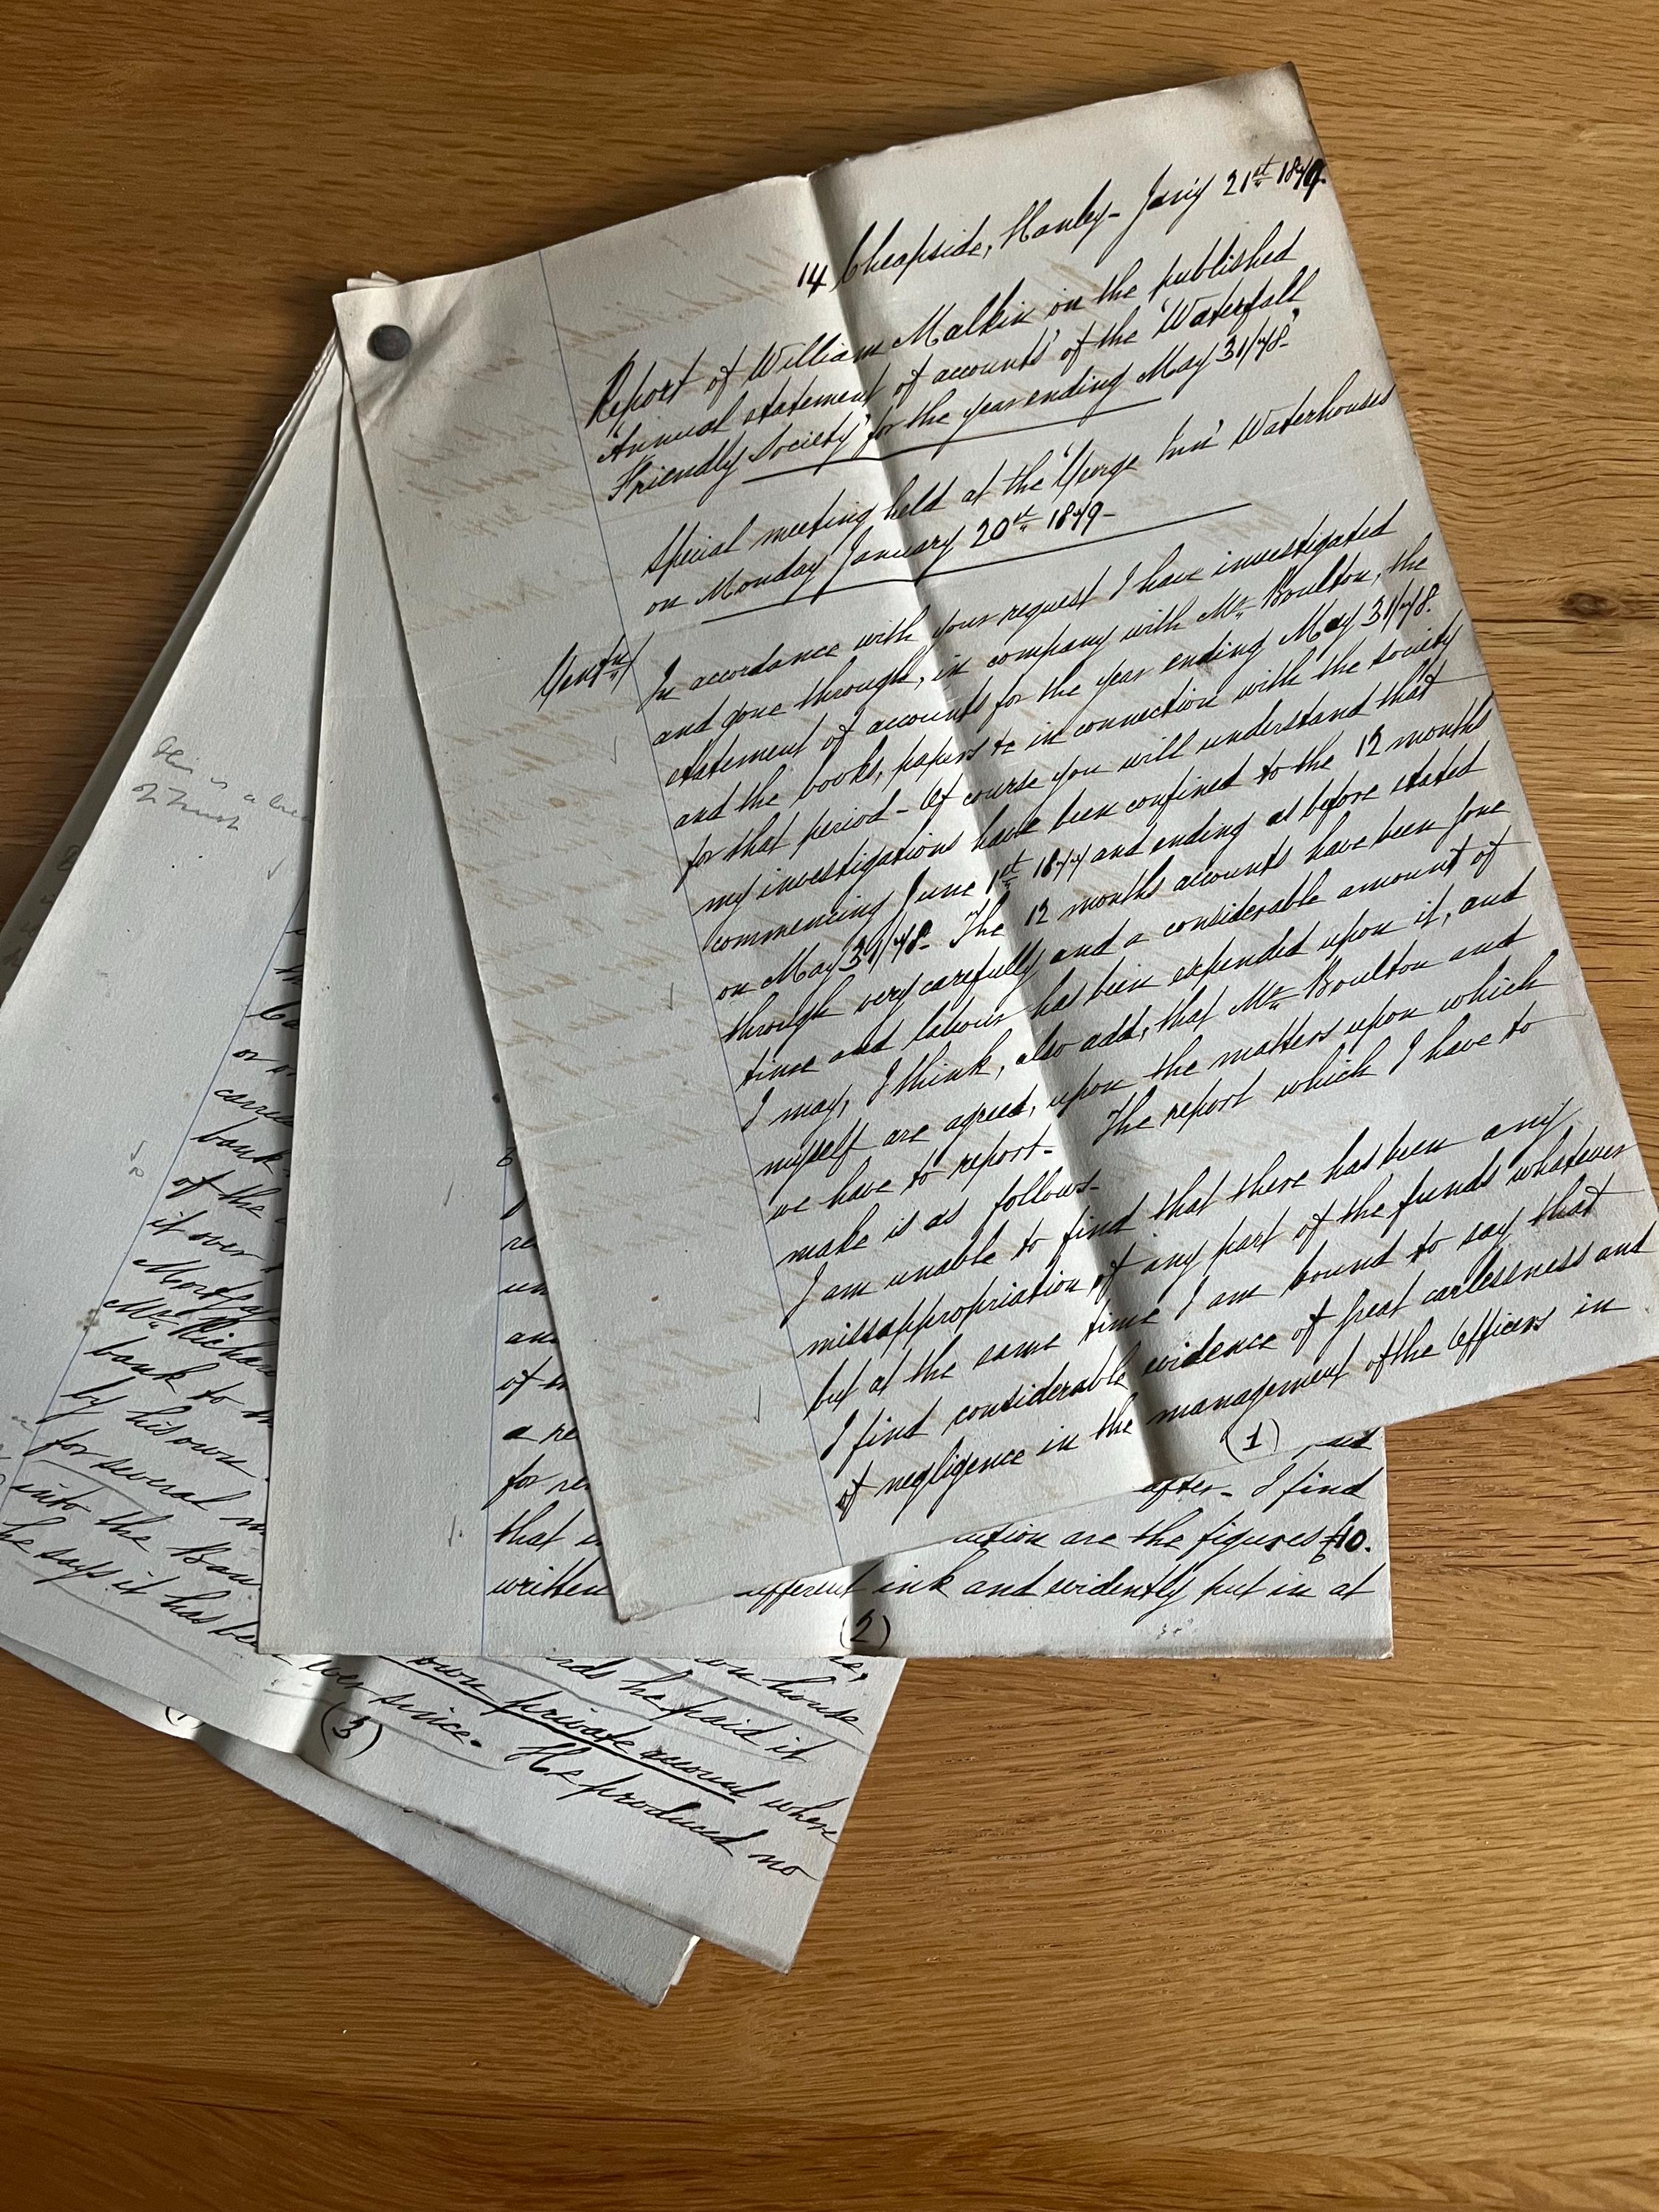 14, Cheapside, Hanley - Jan'y 21st 1879.
Report of William Malkin on the published
'Annual statement of accounts' of the 'Waterfall
Friendly Society' for the year ending May 31/78.
Special meeting held at the 'George Inn' Waterhouses
on Monday January 20th 1879 -
Gentn/ In accordance with your request I have investigated
and gone through, in company with Mr. Boulton, the
statement of accounts for the year ending May 31/78.
and the books, papers &c in connection with the society
for that period - Of course you will understand that
my investigations have been confined to the 12 months
commencing June 1st 1877 and ending as before stated
on May 31/78. The 12 months accounts have been gone
through very carefully and a considerable amount of
time and labour has been expended upon it, and
I may, I think, also add, that Mr. Boulton and
myself are agreed, upon the matters upon which
we have to report - The report which I have to
make is as follows -
I am unable to find that there has been any
missappropriation of any part of the funds whatever
but at the same time I am bound to say that
I find considerable evidence of great carlessness and
of negligence in the management of the Officers in
(1)
and
after - I find
are the figures £10.
that
written
ink and evidently put in at
(2)
un
and
of
a re
for re
This is a
of Trust
or
bank
of the
it over
Mr. Richar
bank to
by his own
house
for several
he paid it
into the Ban
own private account where
he says it has been ever since. He produced no
(3)